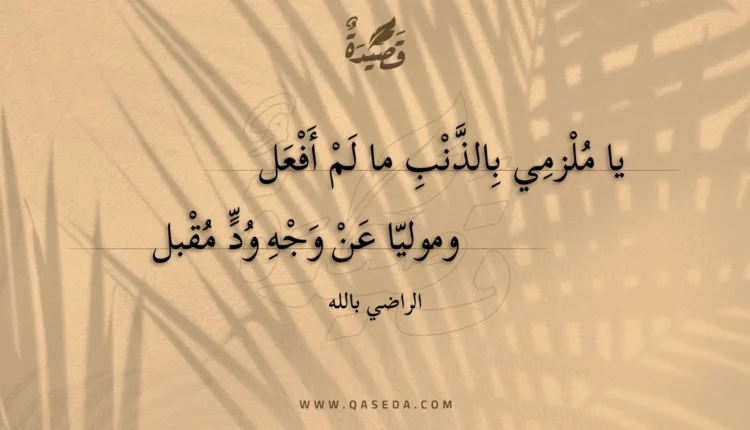 قَصِيْدَةٌ
يا مُلْزمِي بِالذَّنْبِ ما لَمْ أَفْعَل
وموليّا عَنْ وَجْهِ وُدٍّ مُقْبل
الراضي بالله
WWW.QASEDA.COM